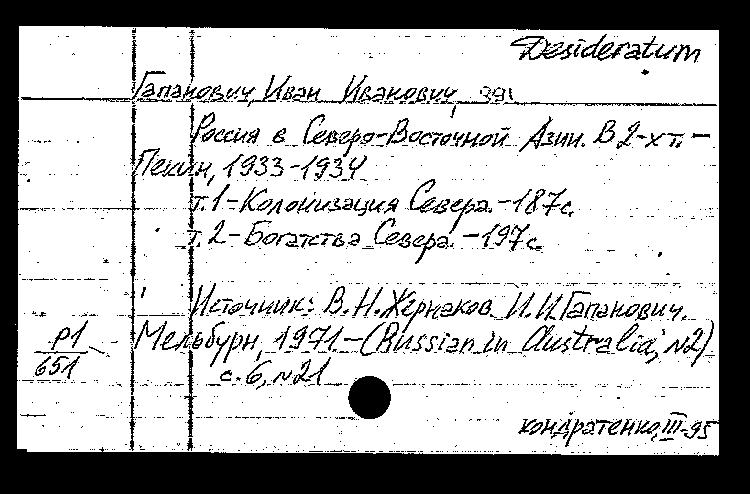 Desideratum
Гапанович, Иван Иванович, 391
Россия в Северо-Восточной Азии. В 2-х т. –
Пекин, 1933-1934
т.1 – Колонизация Севера. – 187с.
т.2 – Богатства Севера. – 197с.
Источник: В.Н. Жернаков И.И. Гапанович.
Мельбурн, 1971. – (Russian in Australia, №2)
с. 6, №21
P1
651
кондратенко, III-95